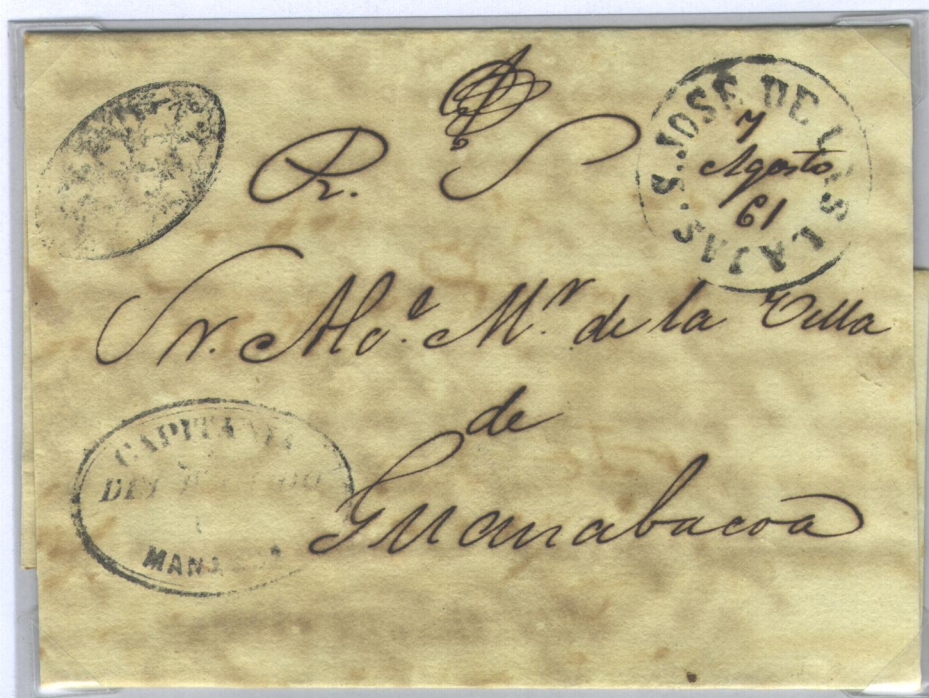 R. S
S. JOSÉ DE LAS LAJAS.
7
Agosto
61
Sr. Alc.e M.r de la Villa
de
Guanabacoa
CAPITANIA
DEL PARTIDO
MANAGUA